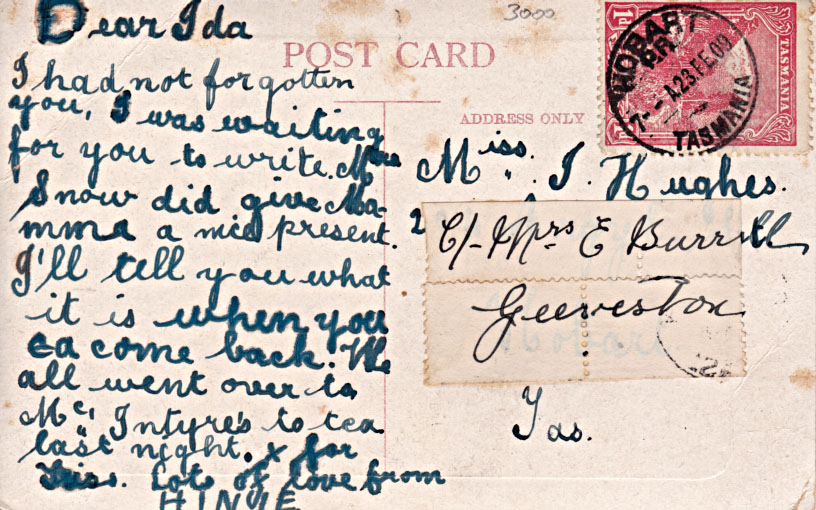 3000
Dear Ida
I had not forgotten
you, I was waiting
for you to write. Mrs
Snow did give Ma-
mma a nice present.
I'll tell you what
it is when you
ca come back. We
all went over to
Mc. Intyre's to tea
last night. x for
Lots of love from
HINVE
POST CARD
ADDRESS ONLY
Miss. I. Hughes.
2
C/- Mrs E Burrill
Geeveston
Hobart
Tas.
1d
TASMANIA
HOBART
7- - A 23 FE 09
TASMANIA